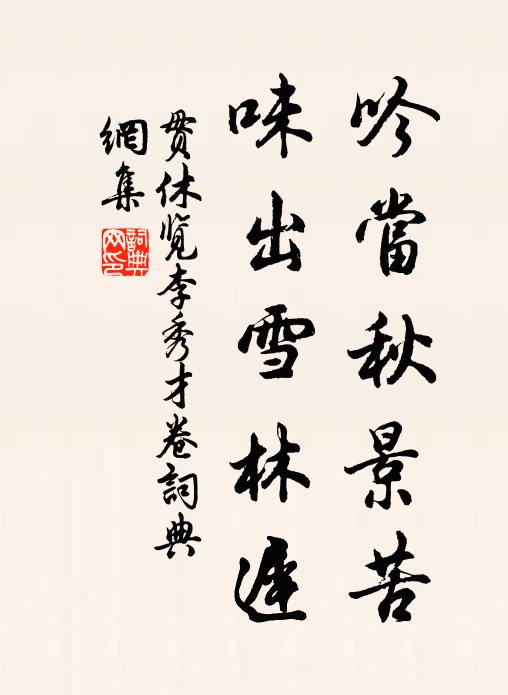 吟當秋景苦
味出雪林遲
貫休覽李秀才卷詞典
網集
詞典
网印